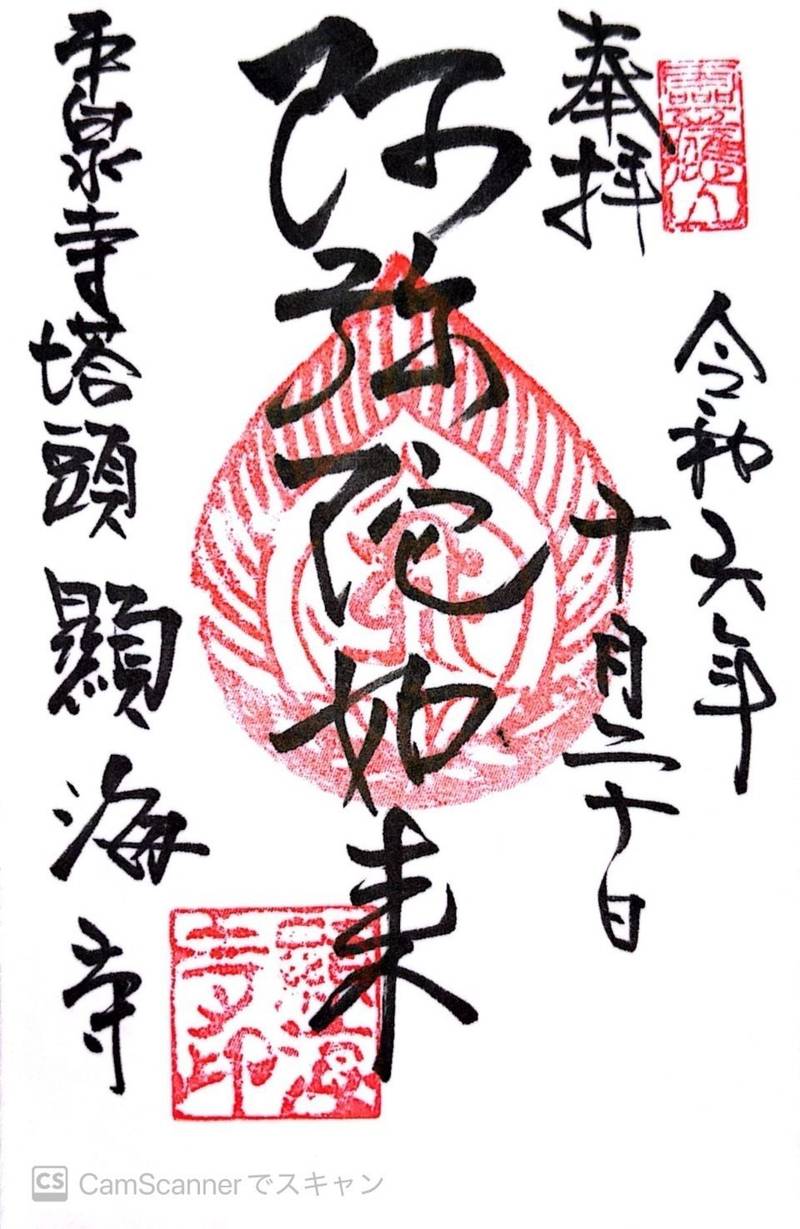 靈應山
奉拝
令和六年
十月二十日
阿弥陀如来
平泉寺塔頭 顯海寺
顯海寺印
CS CamScannerでスキャン